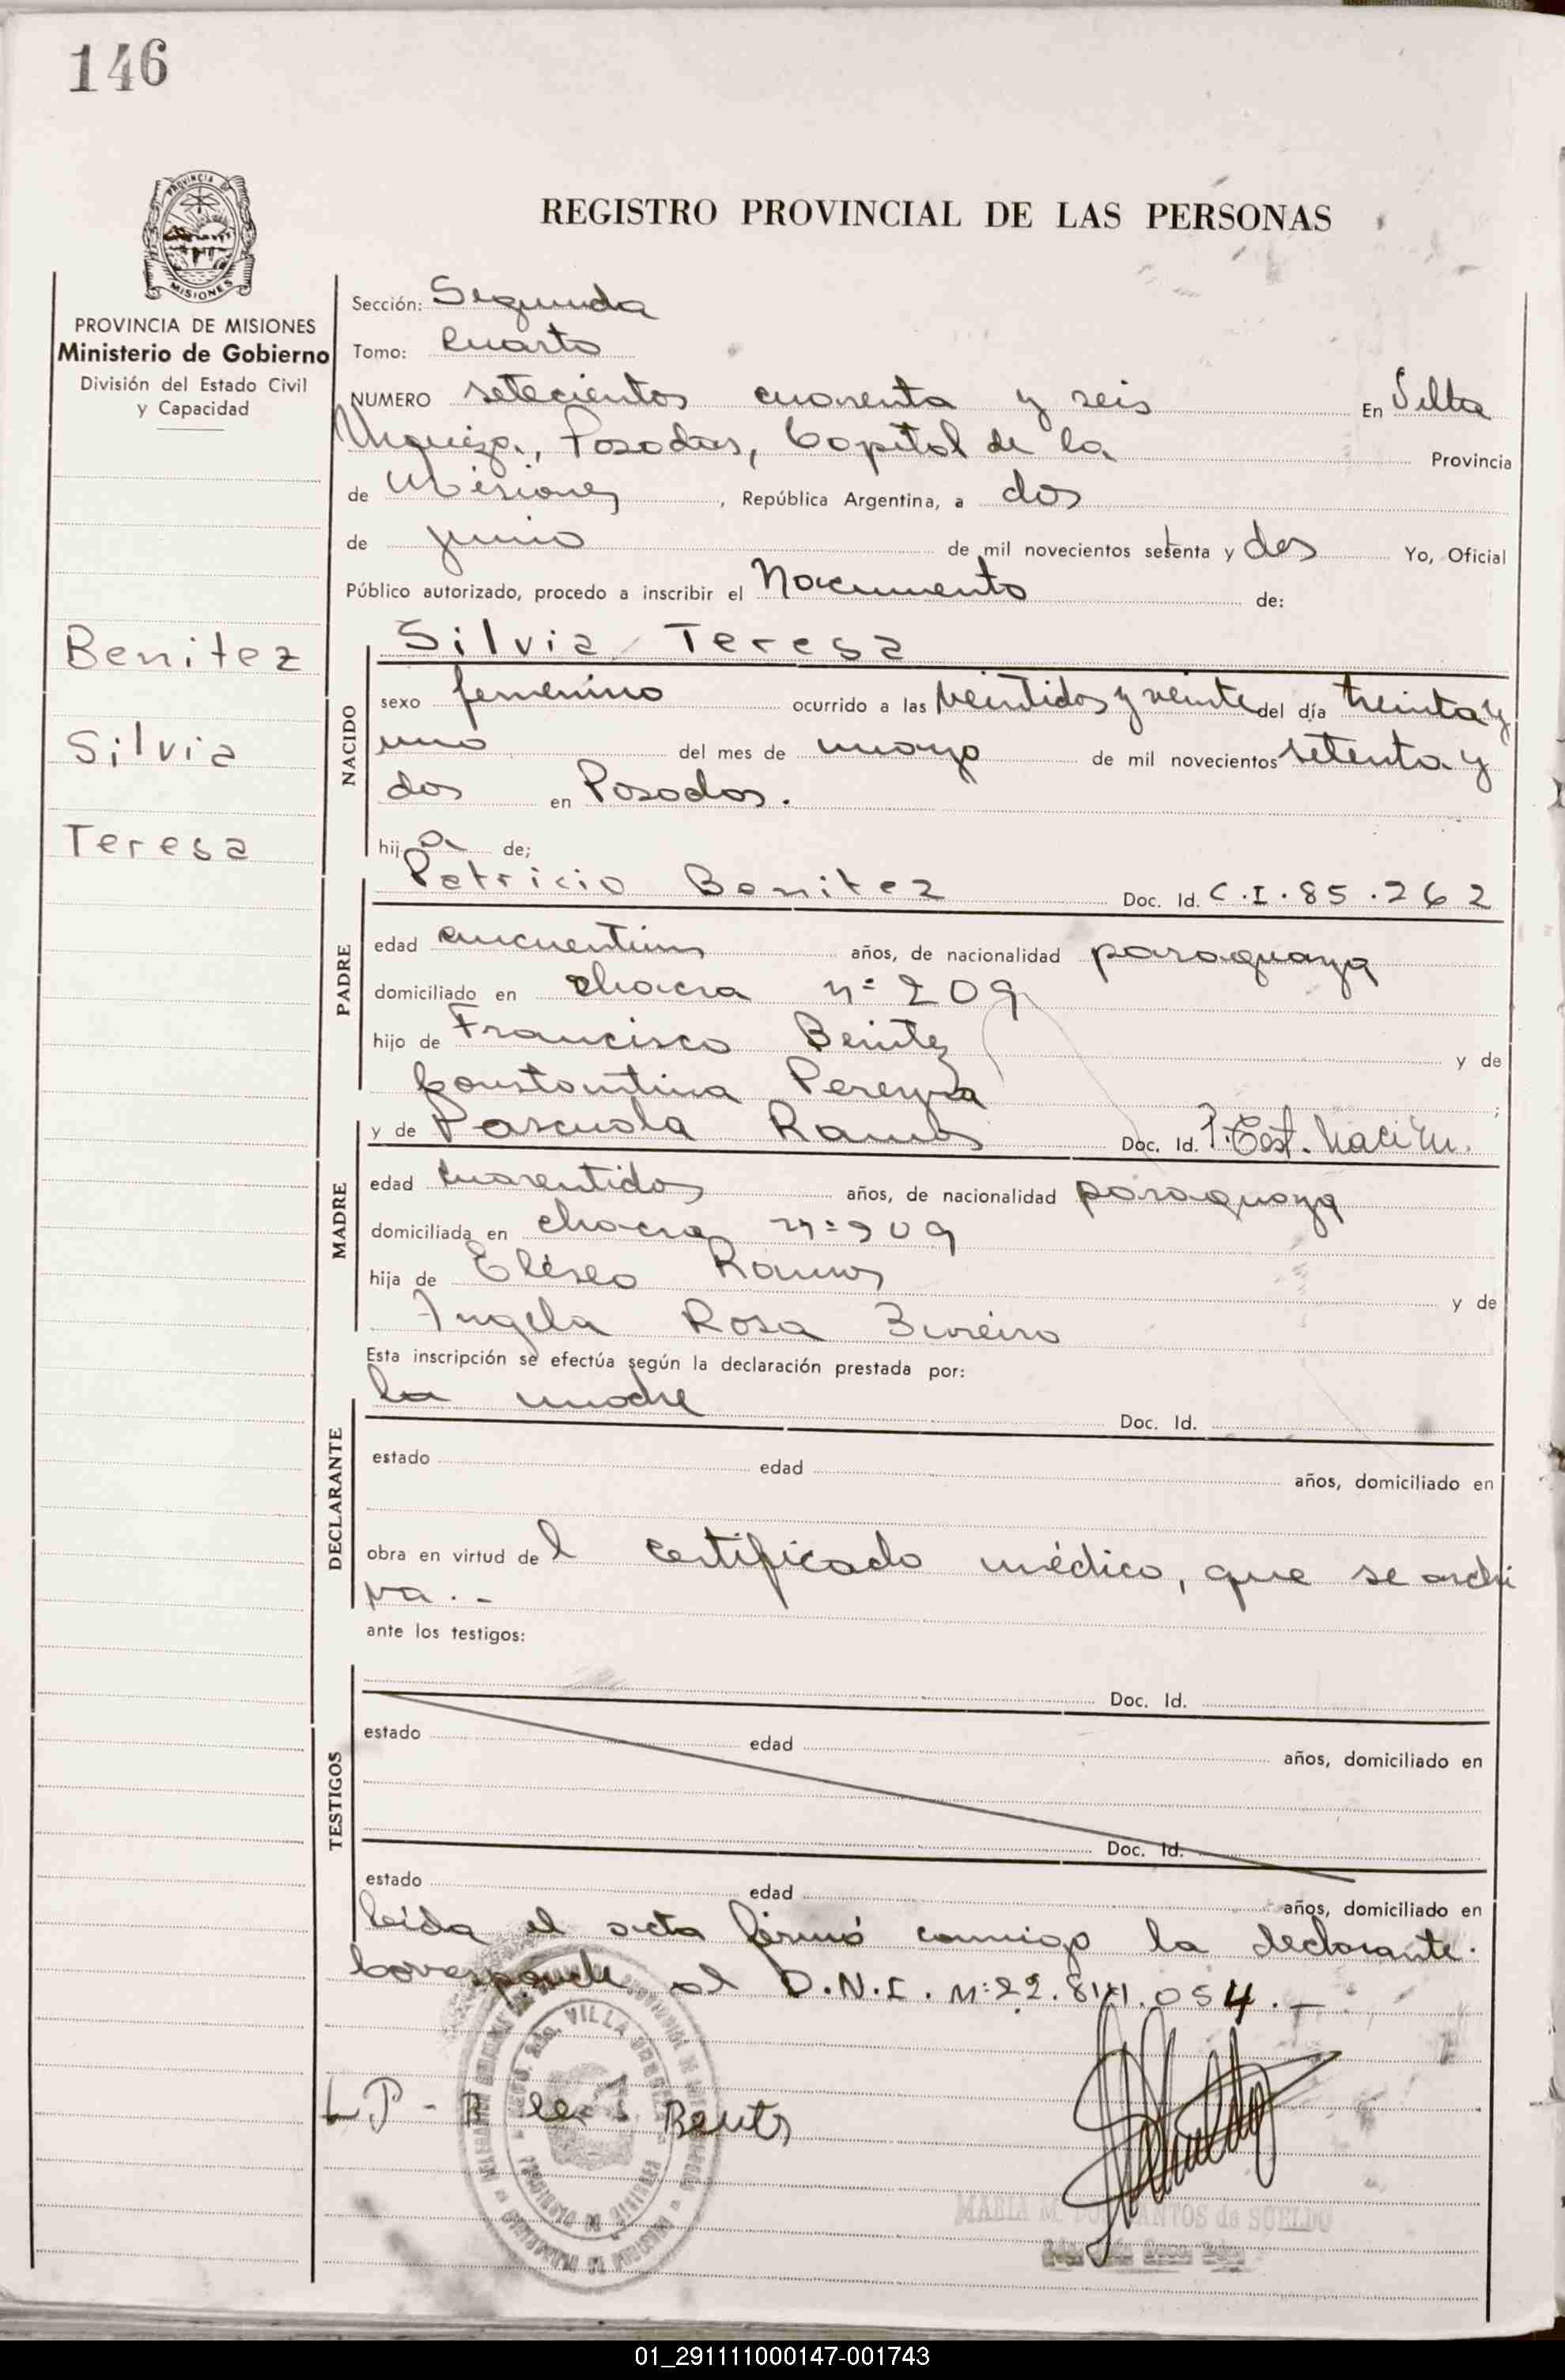 146
PROVINCIA DE MISIONES
Ministerio de Gobierno
División del Estado Civil
y Capacidad
Benitez
Silvia
Teresa
REGISTRO PROVINCIAL DE LAS PERSONAS
Sección: Segunda
Tomo: Cuarto
NUMERO setecientos cuarenta y seis En Villa
Urquiza, Posadas, Capital de la Provincia
de Misiones, República Argentina, a dos
de junio de mil novecientos setenta y dos Yo, Oficial
Público autorizado, procedo a inscribir el Nacimiento de:
NACIDO
Silvia Teresa
sexo femenino ocurrido a las veintidos y veinte del día treinta y
uno del mes de mayo de mil novecientos setenta y
dos en Posadas.
hija de;
PADRE
Patricio Benitez Doc. Id. C.I. 85.262
edad cincuentiun años, de nacionalidad paraguaya
domiciliado en chacra nº 209
hijo de Francisco Benitez y de
Constantina Pereyra;
MADRE
y de Pascuala Ramos Doc. Id. P. Cest. Nacim.
edad cuarentidos años, de nacionalidad paraguaya
domiciliada en chacra nº 209
hija de Eliseo Ramos y de
Angela Rosa
Esta inscripción se efectúa según la declaración prestada por:
DECLARANTE
la madre Doc. Id.
estado edad años, domiciliado en
obra en virtud del certificado médico, que se archi
va.-
ante los testigos:
TESTIGOS
Doc. Id.
estado edad años, domiciliado en
Doc. Id.
estado edad años, domiciliado en
leída el acta firmó conmigo la declarante.
Corresponde al D.N.I. Nº 22.841.054.-
VILLA URQUIZA
MARIA M. DOS SANTOS de SUELDO
01_291111000147-001743